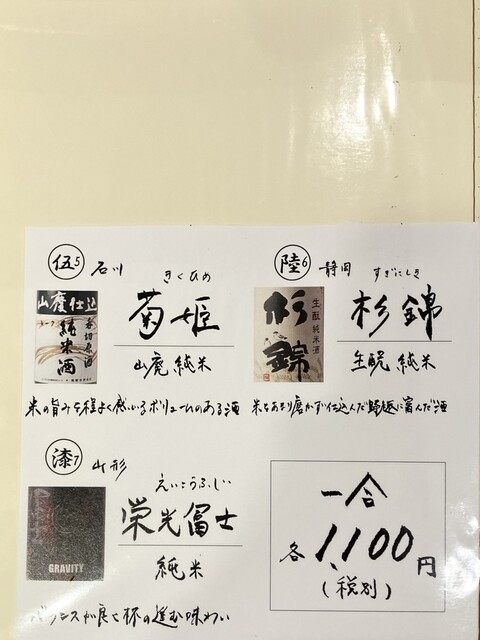 伍5 石川
きくひめ
菊姫
山廃 純米
山廃仕込
呑切原酒
純米酒
米の旨みを程よく感じるボリュームのある酒
陸6 静岡
すぎにしき
杉錦
生酛 純米
生酛純米酒
杉錦
米をあまり磨かず仕込んだ
に富んだ酒
漆7 山形
えいこうふじ
栄光冨士
純米
GRAVITY
バランスが良く杯の進む味わい
一合
各 1,100円
(税別)